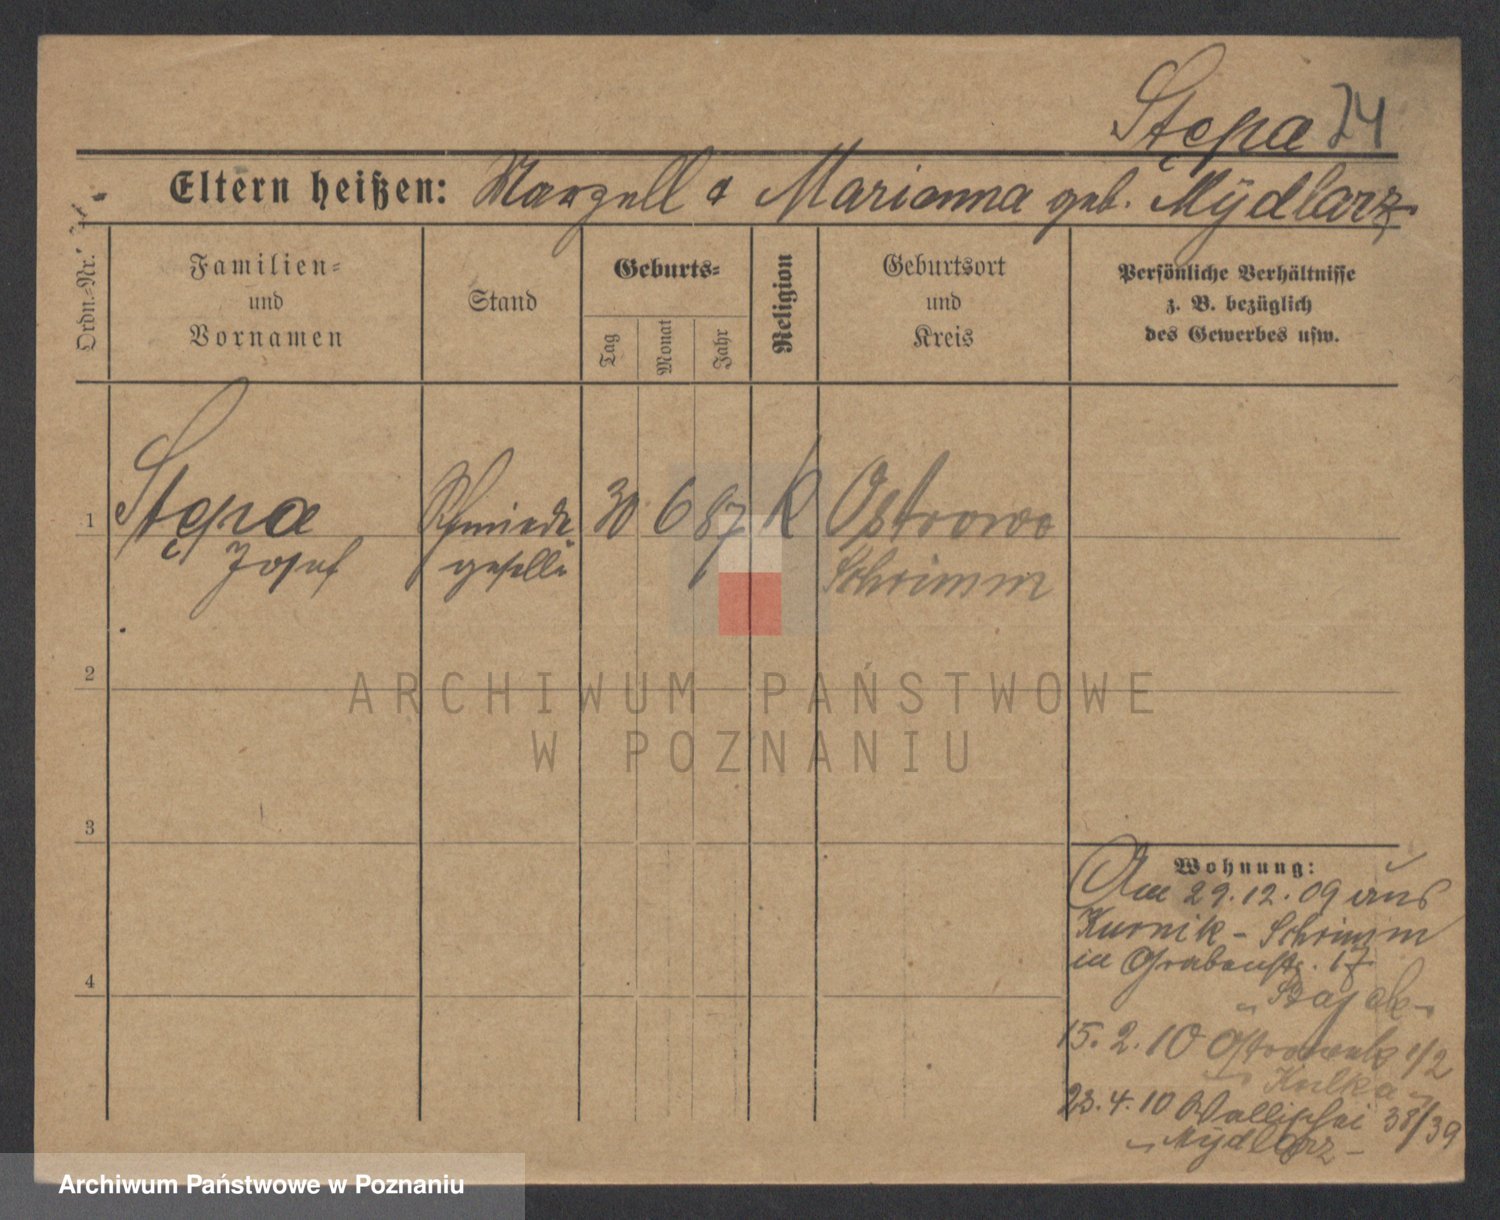 Stępa 24
Eltern heißen: Marzell & Marianna geb. Mÿdlarz
Ordn.-Nr.
Familien-
und
Vornamen
Stand
Geburts-
Tag
Monat
Jahr
Religion
Geburtsort
und
Kreis
Persönliche Verhältnisse
z. B. bezüglich
des Gewerbes usw.
1 Stępa Schmiede 30 6 87 K Ostrowo
Josef geselle Schrimm
2
3
4
Wohnung:
Am 29.12.09 aus
Kurnik - Schrimm
in Grabenstr. 17
15. 2. 10 Ostrowek 1/2
Kulka
23. 4. 10 Wallischei 38/39
Mÿdlarz
ARCHIWUM PAŃSTWOWE
W POZNANIU
Archiwum Państwowe w Poznaniu